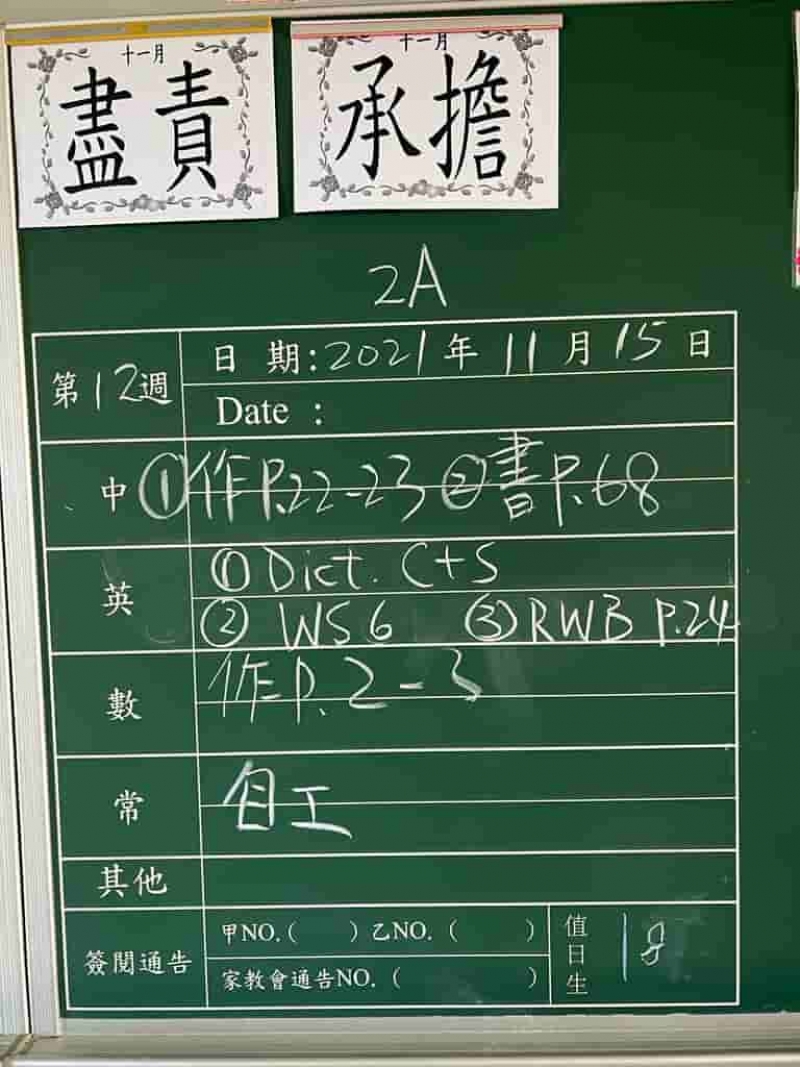 十一月
盡責
十一月
承擔
2A
第12週
日 期:2021年11月15日
Date :
中 ①作P.22-23 ②書P.68
英 ① Dict. C+S
② WS6 ③ RWB P.24
數 作P.2-3
常 自工
其他
簽閱通告 甲NO.( ) 乙NO.( )
家教會通告NO.( )
值日生 18